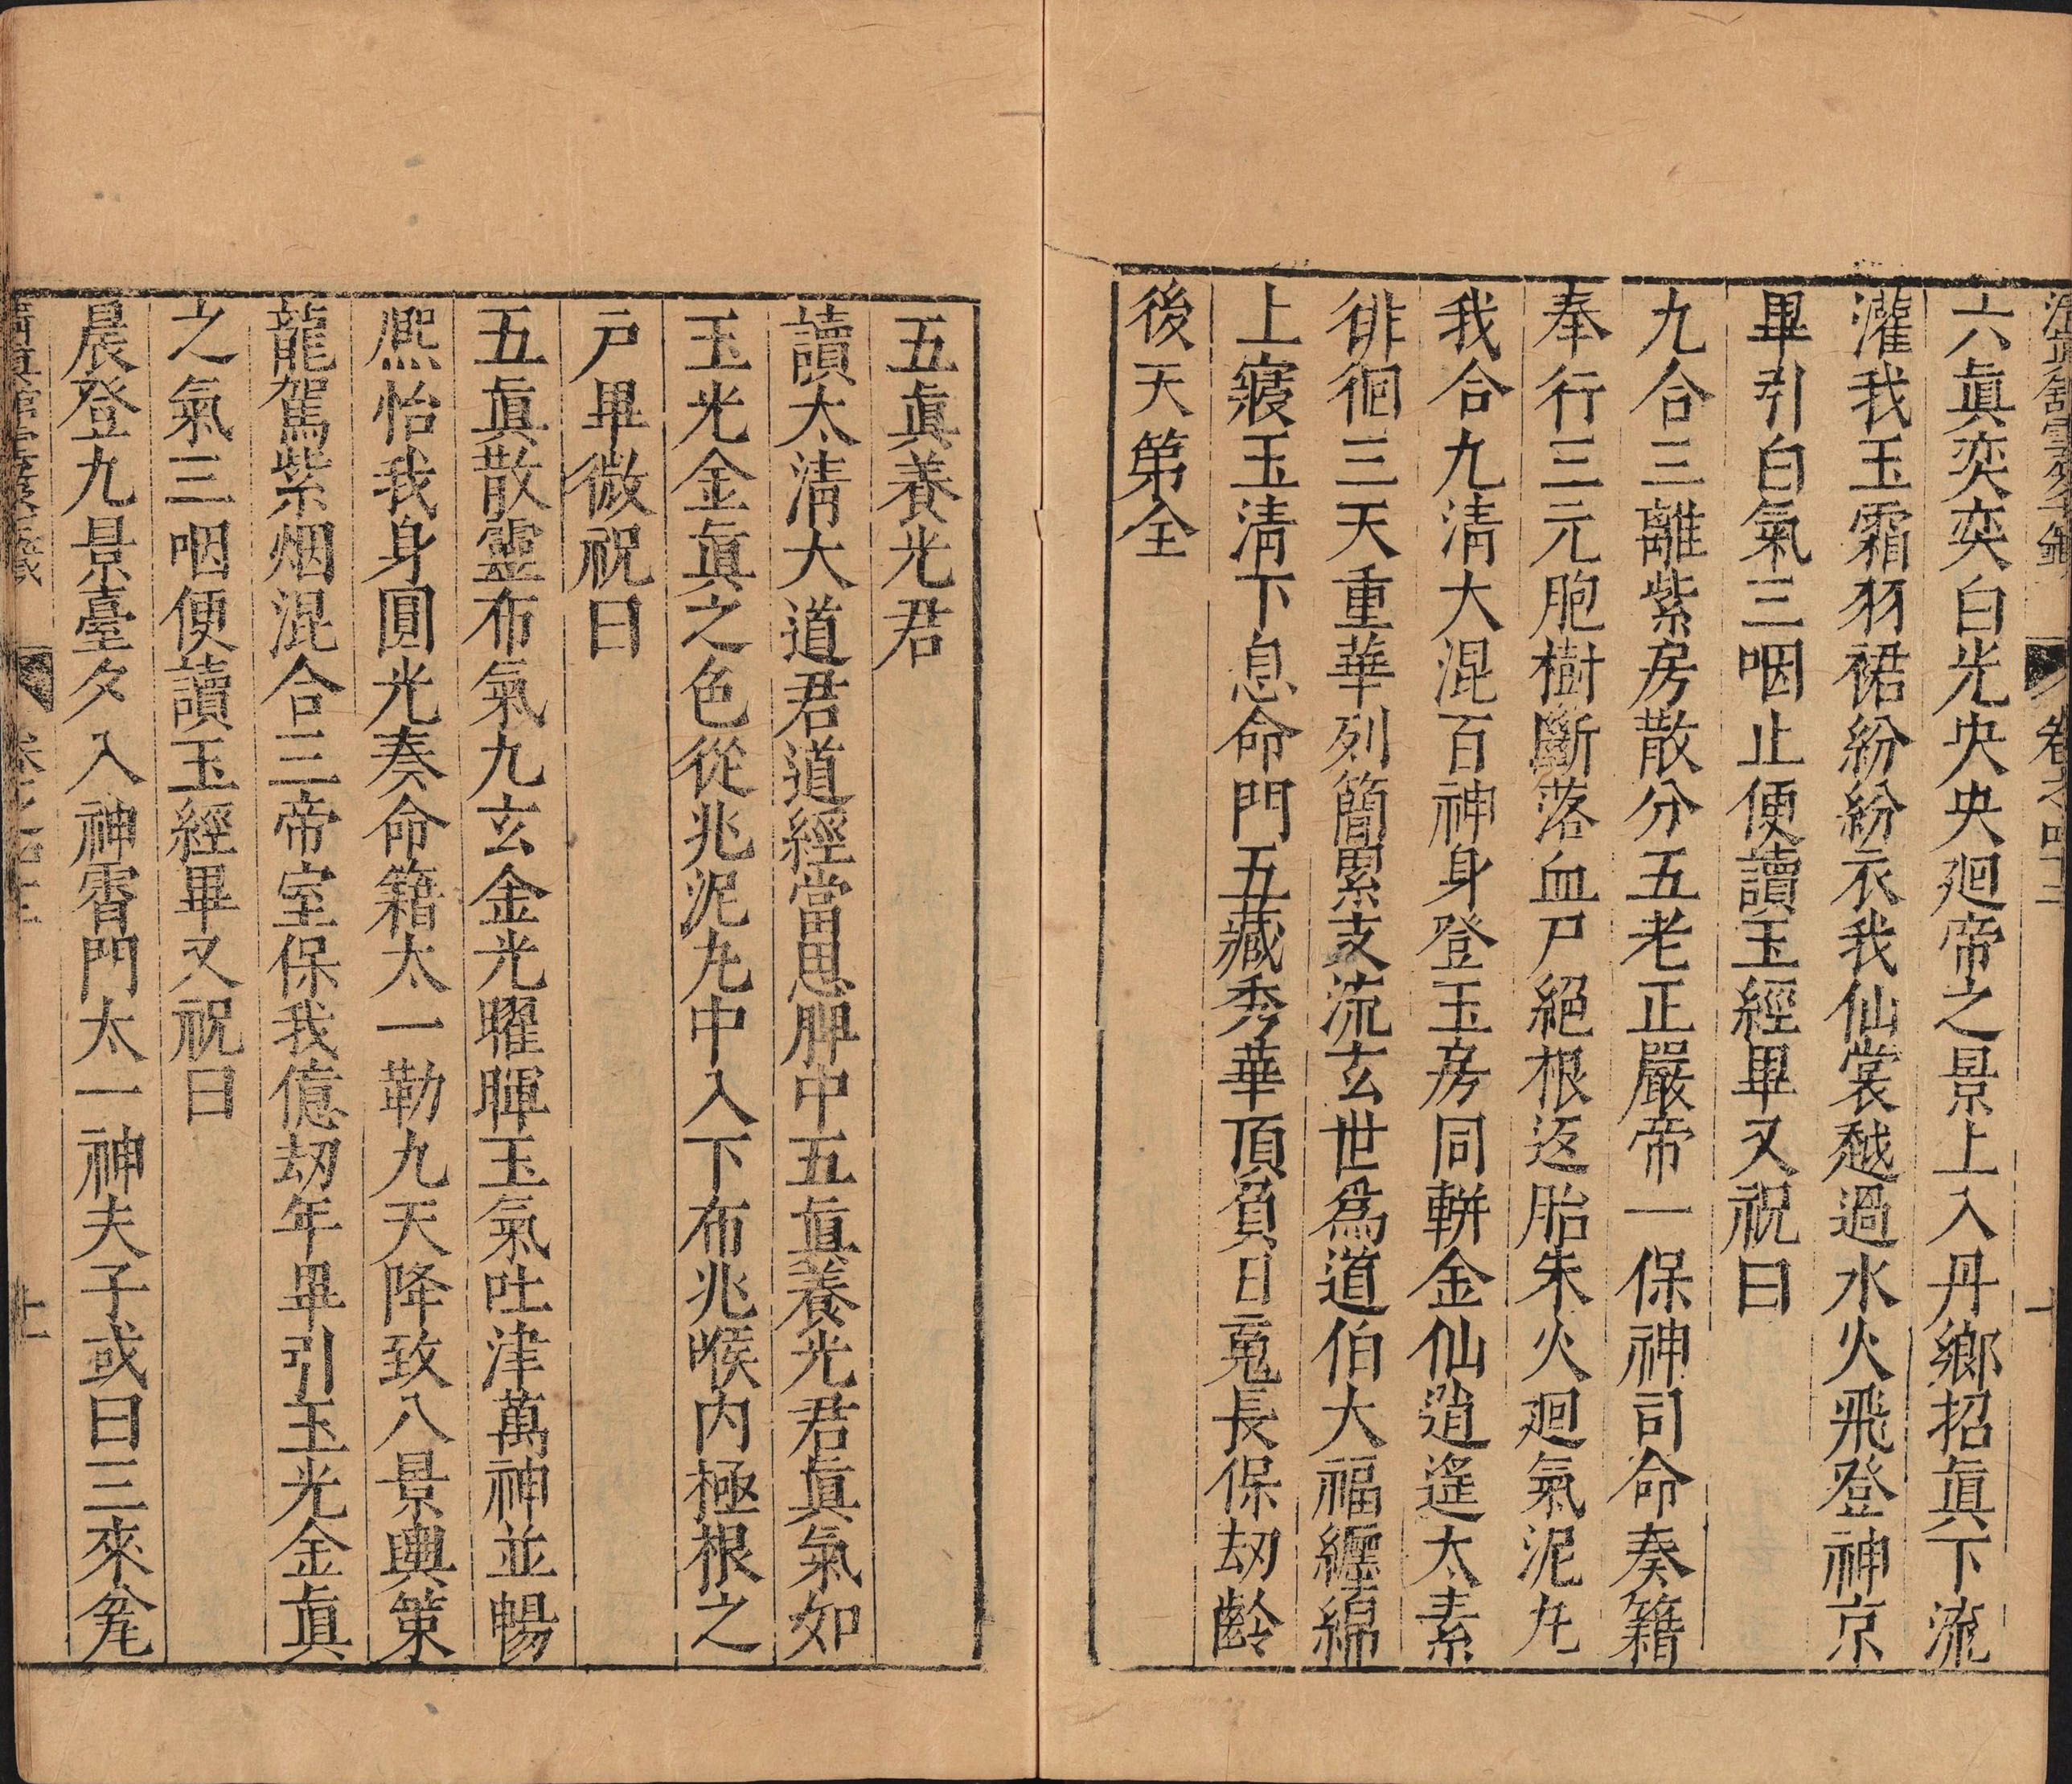 六眞奕奕白光央央廻帝之景上入丹鄉招眞下流
灌我玉霜羽裙紛紛衣我仙裳越過水火飛登神京
畢引白氣三咽止便讀玉經畢又祝曰
九合三離紫房散分五老正嚴帝一保神司命奏籍
奉行三元胞樹斷落血尸絕根返胎朱火廻氣泥九
我合九清大混百神身登玉房同輧金仙逍遙太素
徘徊三天重華列簡累支流玄世爲道伯大福纏綿
上寢玉清下息命門五藏秀華頂負日冕長保劫齡
後天第全
五眞養光君
讀太清大道君道經當思脾中五眞養光君眞氣如
玉光金眞之色從兆泥九中入下布兆喉内極根之
戸畢微祝曰
五眞散靈布氣九玄金光曜暉玉氣吐津萬神並暢
熈怡我身圓光奏命籍太一勒九天降致八景輿策
龍駕紫烟混合三帝室保我億劫年畢引玉光金眞
之氣三咽便讀玉經畢又祝曰
晨登九景臺夕入神霄門太一神夫子或曰三來㝹